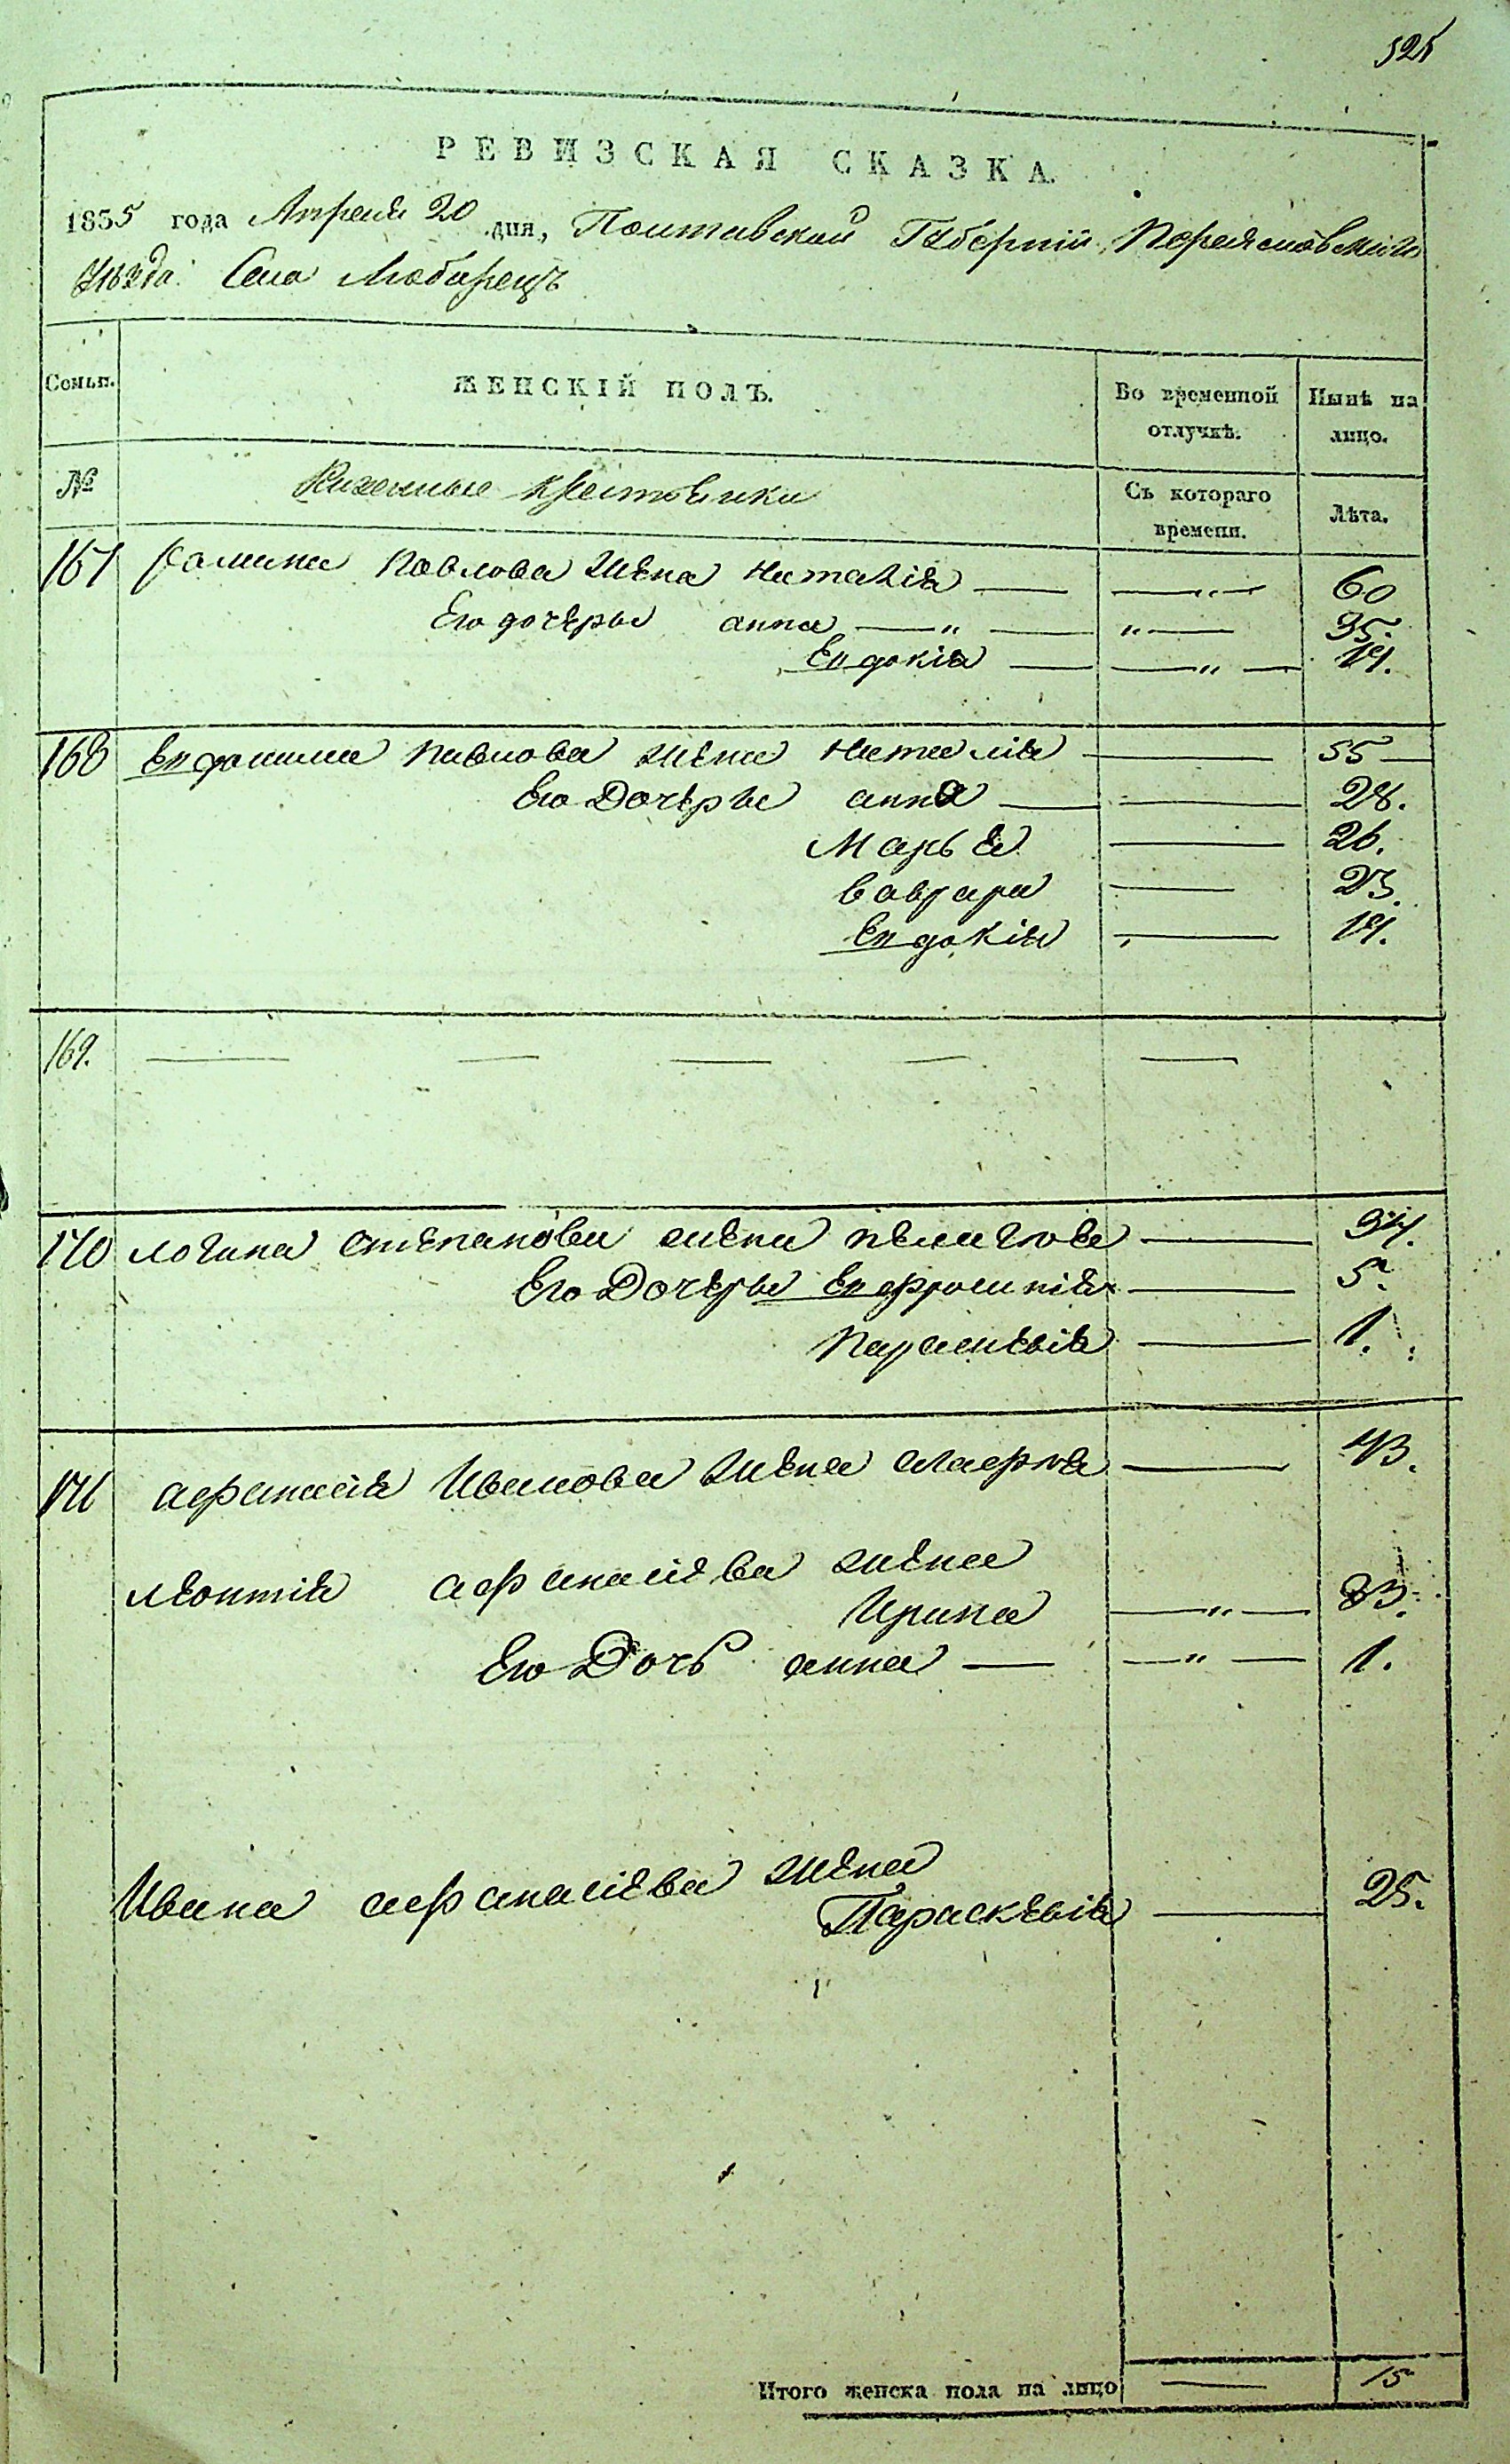 РЕВИЗСКАЯ СКАЗКА.
1835 года Апреля 20 дня, Полтавской Губерніи, Переяславскаго
Уѣзда Села Любарецъ
Семьи. ЖЕНСКІЙ ПОЛЪ. Во временной отлучкѣ. Нынѣ на лицо.
№ Казенные Съ котораго времени. Лѣта.
167 Павлова жена Наталія — — „ — 60
Его дочеры анна — „ — „ — 35.
Евдокія — — „ — 19.
168 Павлова жена Наталія — 55 —
Его Дочеры анна — — 28.
Марья — 26.
Варвара — 23.
Евдокія — 19.
169. — — — — —
170 логина степанова жена пелагея — 34.
Его Дочеры Евфросинія — 5.
Параскевія — 1.
171 афанасія Иванова жена — 43.
леонтія афанасіева жена
Ирина — „ — 23.
Его Дочь анна — — „ — 1.
Ивана афанасіева жена
Параскевія — 25.
Итого женска пола на лицо — 15